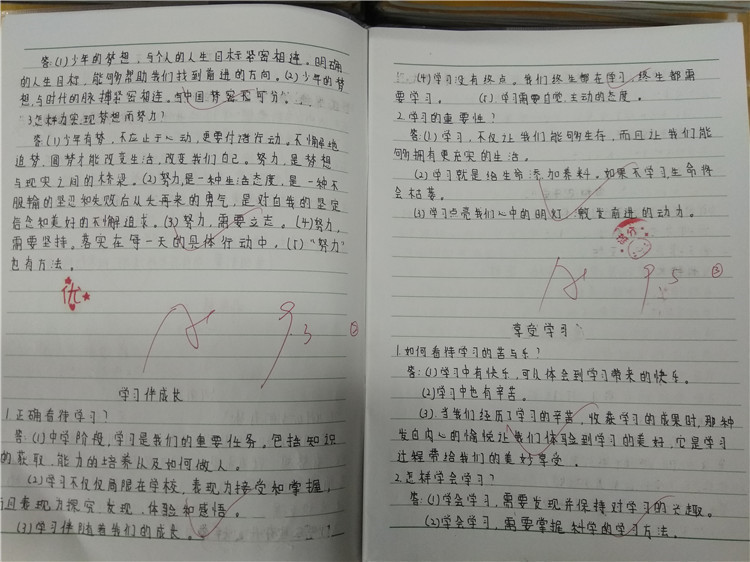 答:(1)少年的梦想,与个人的人生目标紧密相连。明确
的人生目标,能够帮助我们找到前进的方向。(2)少年的梦
想,与时代的脉搏紧密相连,与中国梦密不可分。
3.怎样为实现梦想而努力?
答:(1)少年有梦,不应止于心动,更要付诸行动。不懈地
追梦、圆梦才能改变生活,改变我们自己。努力,是梦想
与现实之间的桥梁。(2)努力,是一种生活态度,是一种不
服输的坚忍和失败后从头再来的勇气,是对自我的坚定
信念和美好的不懈追求。(3)努力,需要立志。(4)努力,
需要坚持。落实在每一天的具体行动中,(5)“努力”
也有方法。
优
学习伴成长
1.正确看待学习?
答:(1)中学阶段,学习是我们的重要任务。包括知识
的获取,能力的培养以及如何做人。
(2)学习不仅仅局限在学校,表现为接受和掌握,
而且表现为探究、发现、体验和感悟。
(3)学习伴随着我们的成长。
(4)学习没有终点。我们终生都在学习,终生都需
要学习。 (5)学习需要自觉、主动的态度。
2.学习的重要性?
答:(1)学习,不仅让我们能够生存,而且让我们能
够拥有更充实的生活。
(2)学习就是给生命添加养料。如果不学习,生命将
会枯萎。
(3)学习点亮我们心中的明灯,激发前进的动力。
享受学习
1.如何看待学习的苦与乐?
答:(1)学习中有快乐,可以体会到学习带来的快乐。
(2)学习中也有辛苦。
(3)当我们经历了学习的辛苦,收获学习的成果时,那种
发自内心的愉悦让我们体验到学习的美好,它是学习
过程带给我们的美好享受。
2.怎样学会学习?
答:(1)学会学习,需要发现并保持对学习的兴趣。
(2)学会学习,需要掌握科学的学习方法。